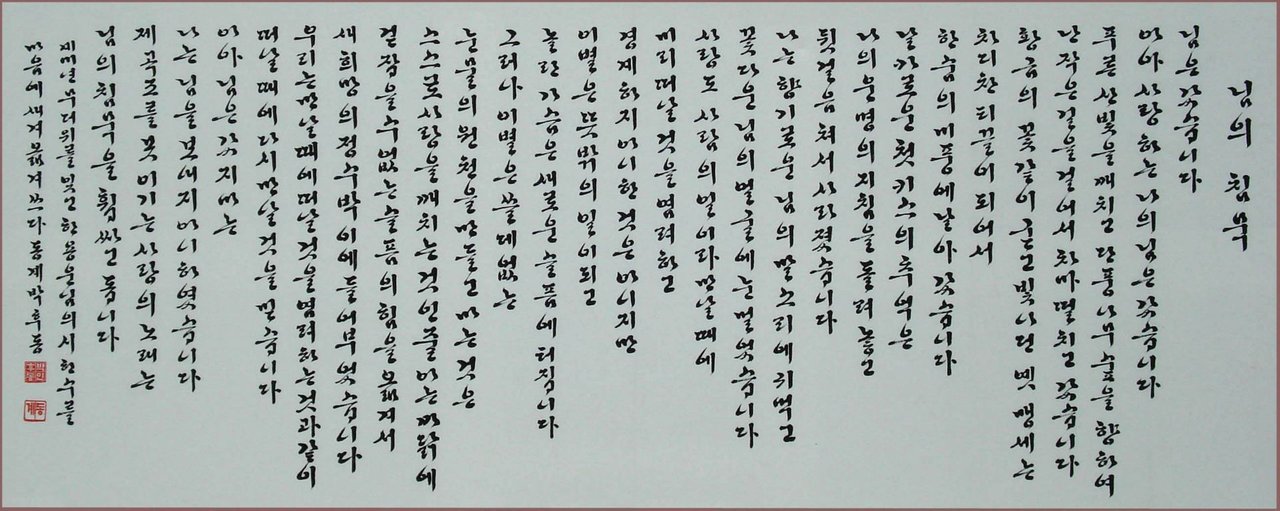 님의 침묵
님은 갔습니다
아아 사랑하는 나의 님은 갔습니다
푸른 산빛을 깨치고 단풍나무 숲을 향하여
난 작은 길을 걸어서 차마 떨치고 갔습니다
황금의 꽃같이 굳고 빛나던 옛 맹세는
차디찬 티끌이 되어서
한숨의 미풍에 날아갔습니다
날카로운 첫 키스의 추억은
나의 운명의 지침을 돌려놓고
뒷걸음쳐서 사라졌습니다
나는 향기로운 님의 말소리에 귀먹고
꽃다운 님의 얼굴에 눈멀었습니다
사랑도 사람의 일이라 만날 때에
미리 떠날 것을 염려하고
경계하지 아니한 것은 아니지만
이별은 뜻밖의 일이 되고
놀란 가슴은 새로운 슬픔에 터집니다
그러나 이별은 쓸데없는
눈물의 원천을 만들고 마는 것은
스스로 사랑을 깨치는 것인 줄 아는 까닭에
걷잡을 수 없는 슬픔의 힘을 옮겨서
새 희망의 정수박이에 들어부었습니다
우리는 만날 때에 떠날 것을 염려하는 것과 같이
떠날 때에 다시 만날 것을 믿습니다
아아 님은 갔지마는
나는 님을 보내지 아니하였습니다
제 곡조를 못 이기는 사랑의 노래는
님의 침묵을 휩싸고 돕니다
무더위를 잊고 한용운님의 시 한 수를
마음에 새겨 옮겨쓰다 동계 박후동